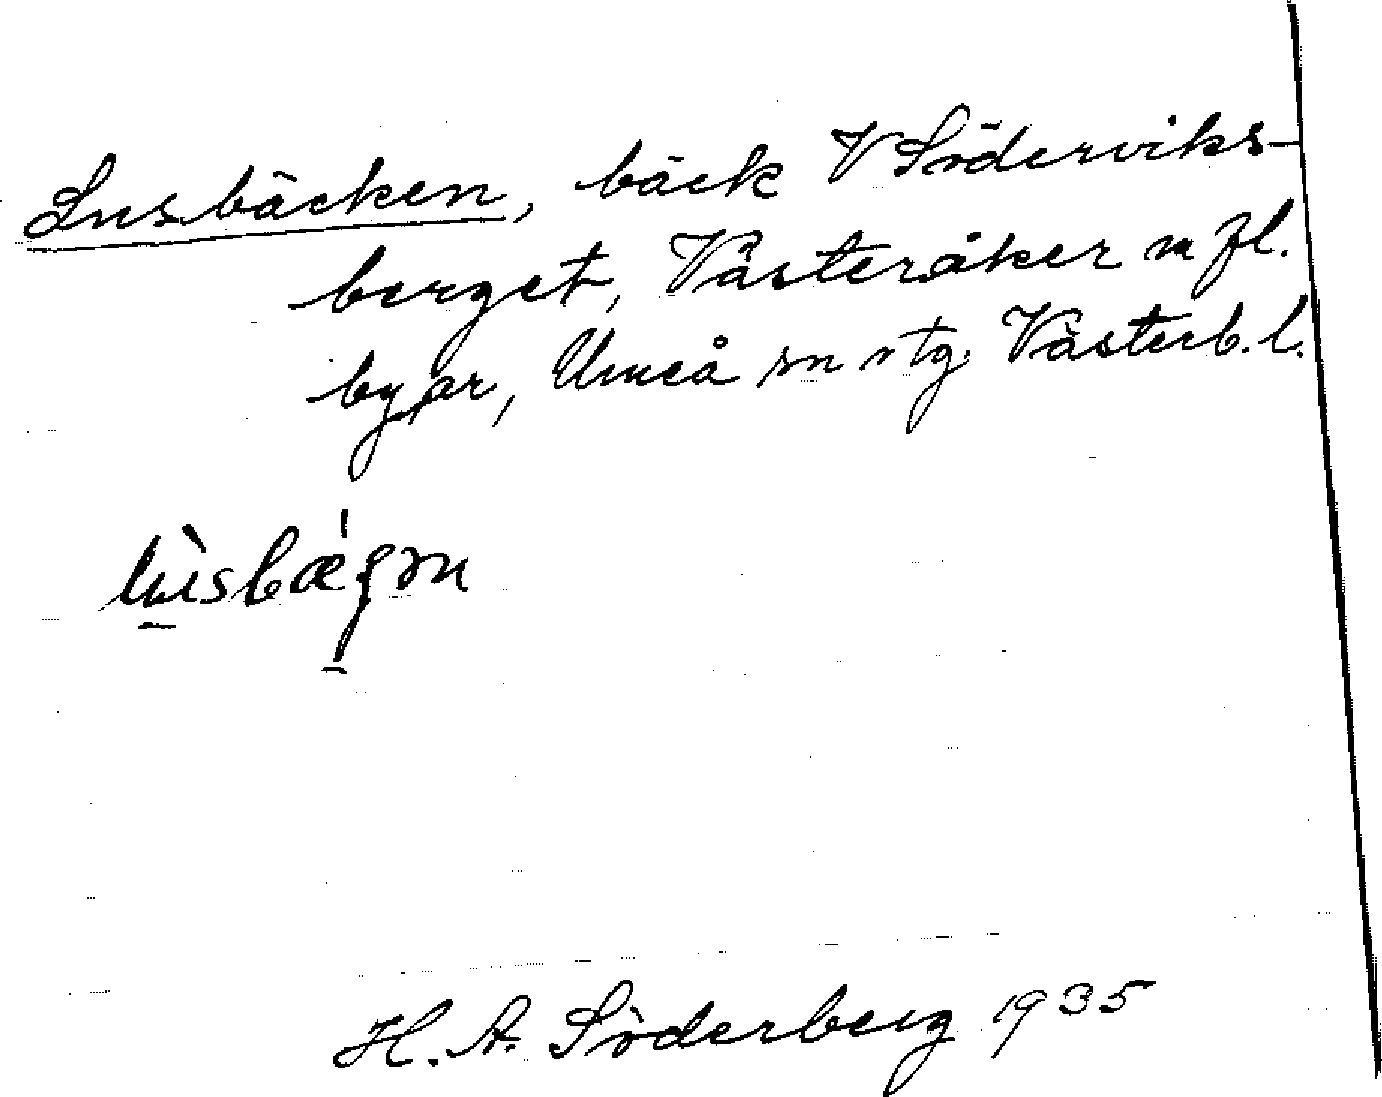 Lusbäcken, bäck V Söderviks-
berget, Västeråker m fl.
byar, Umeå sn stg Västerb. l.
H. A. Söderberg 1935